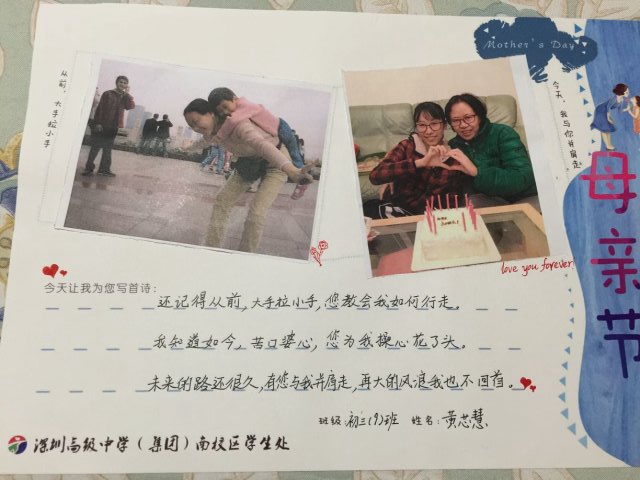 Mother's Day
从前，大手拉小手
今天，我与你并肩走
母亲节
love you forever
今天让我为您写首诗：
还记得从前，大手拉小手，您教会我如何行走。
我知道如今，苦口婆心，您为我操心花了头。
未来的路还很久，有您与我并肩走，再大的风浪我也不回首。
班级：初三(9)班 姓名：黄芯慧
深圳高级中学（集团）南校区学生处